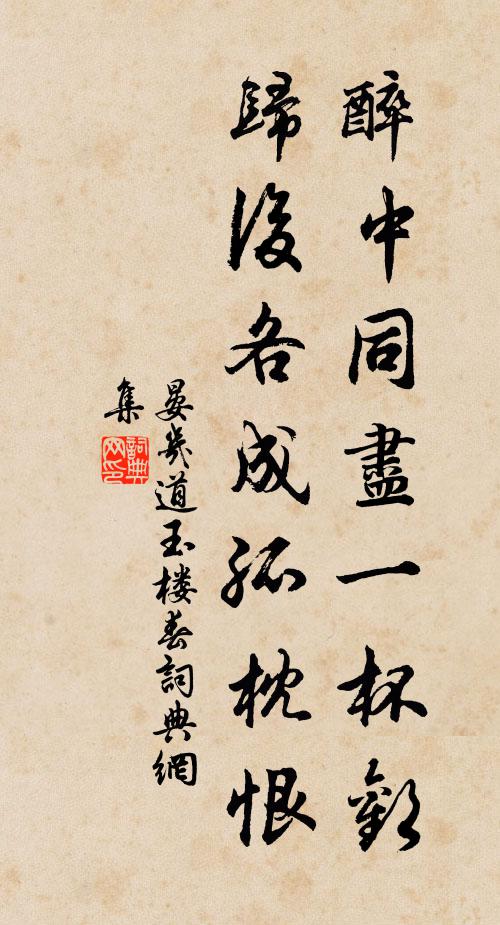 醉中同盡一杯歡
歸後各成孤枕恨
晏幾道玉楼春詞典網
集
詞典网印